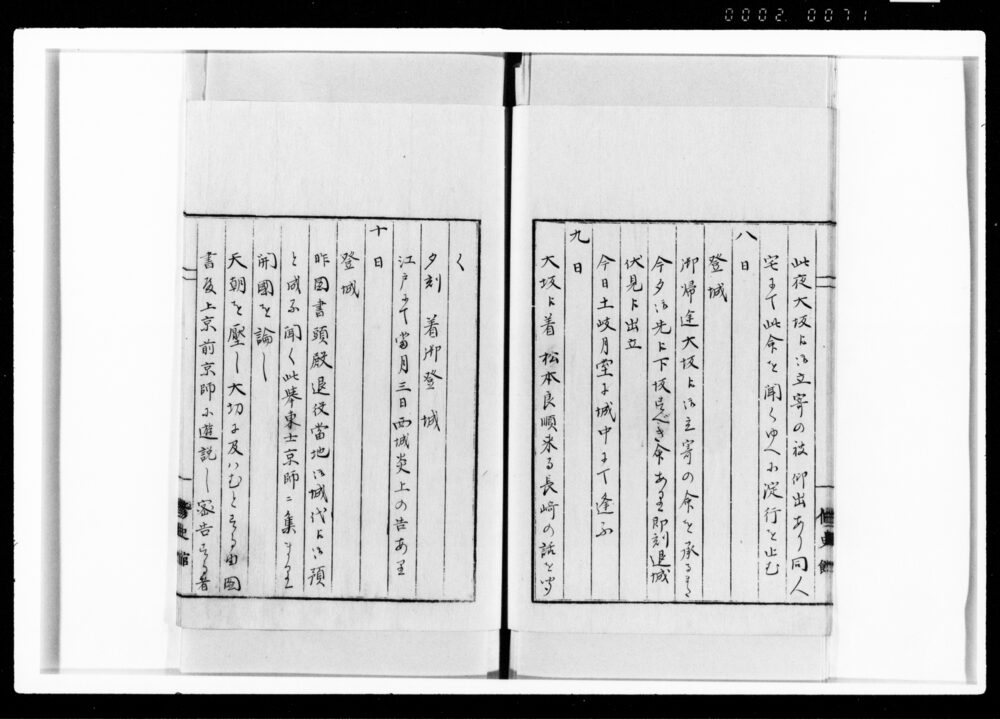 0002.0071
此夜大坂ゟ御立寄の被 仰出あり同人
宅にて此命を聞くゆへに淀行を止む
八日
登城
御帰途大坂ゟ御立寄の命を承る
今夕御先ゟ下坂すべき命あり即刻退城
伏見ゟ出立
今日土岐月堂に城中にて逢ふ
九日
大坂ゟ着 松本良順来る長崎の話を
く
夕刻 着御登城
江戸にて當月三日西城炎上の告あり
十日
登城
昨図書頭殿退役當地御城代ゟ御預
と成る聞く此挙東士京師ニ集
開國を論し
天朝を壓し大切に及はむとする由図
書殿上京前京師に遊説し密告する者
修史館